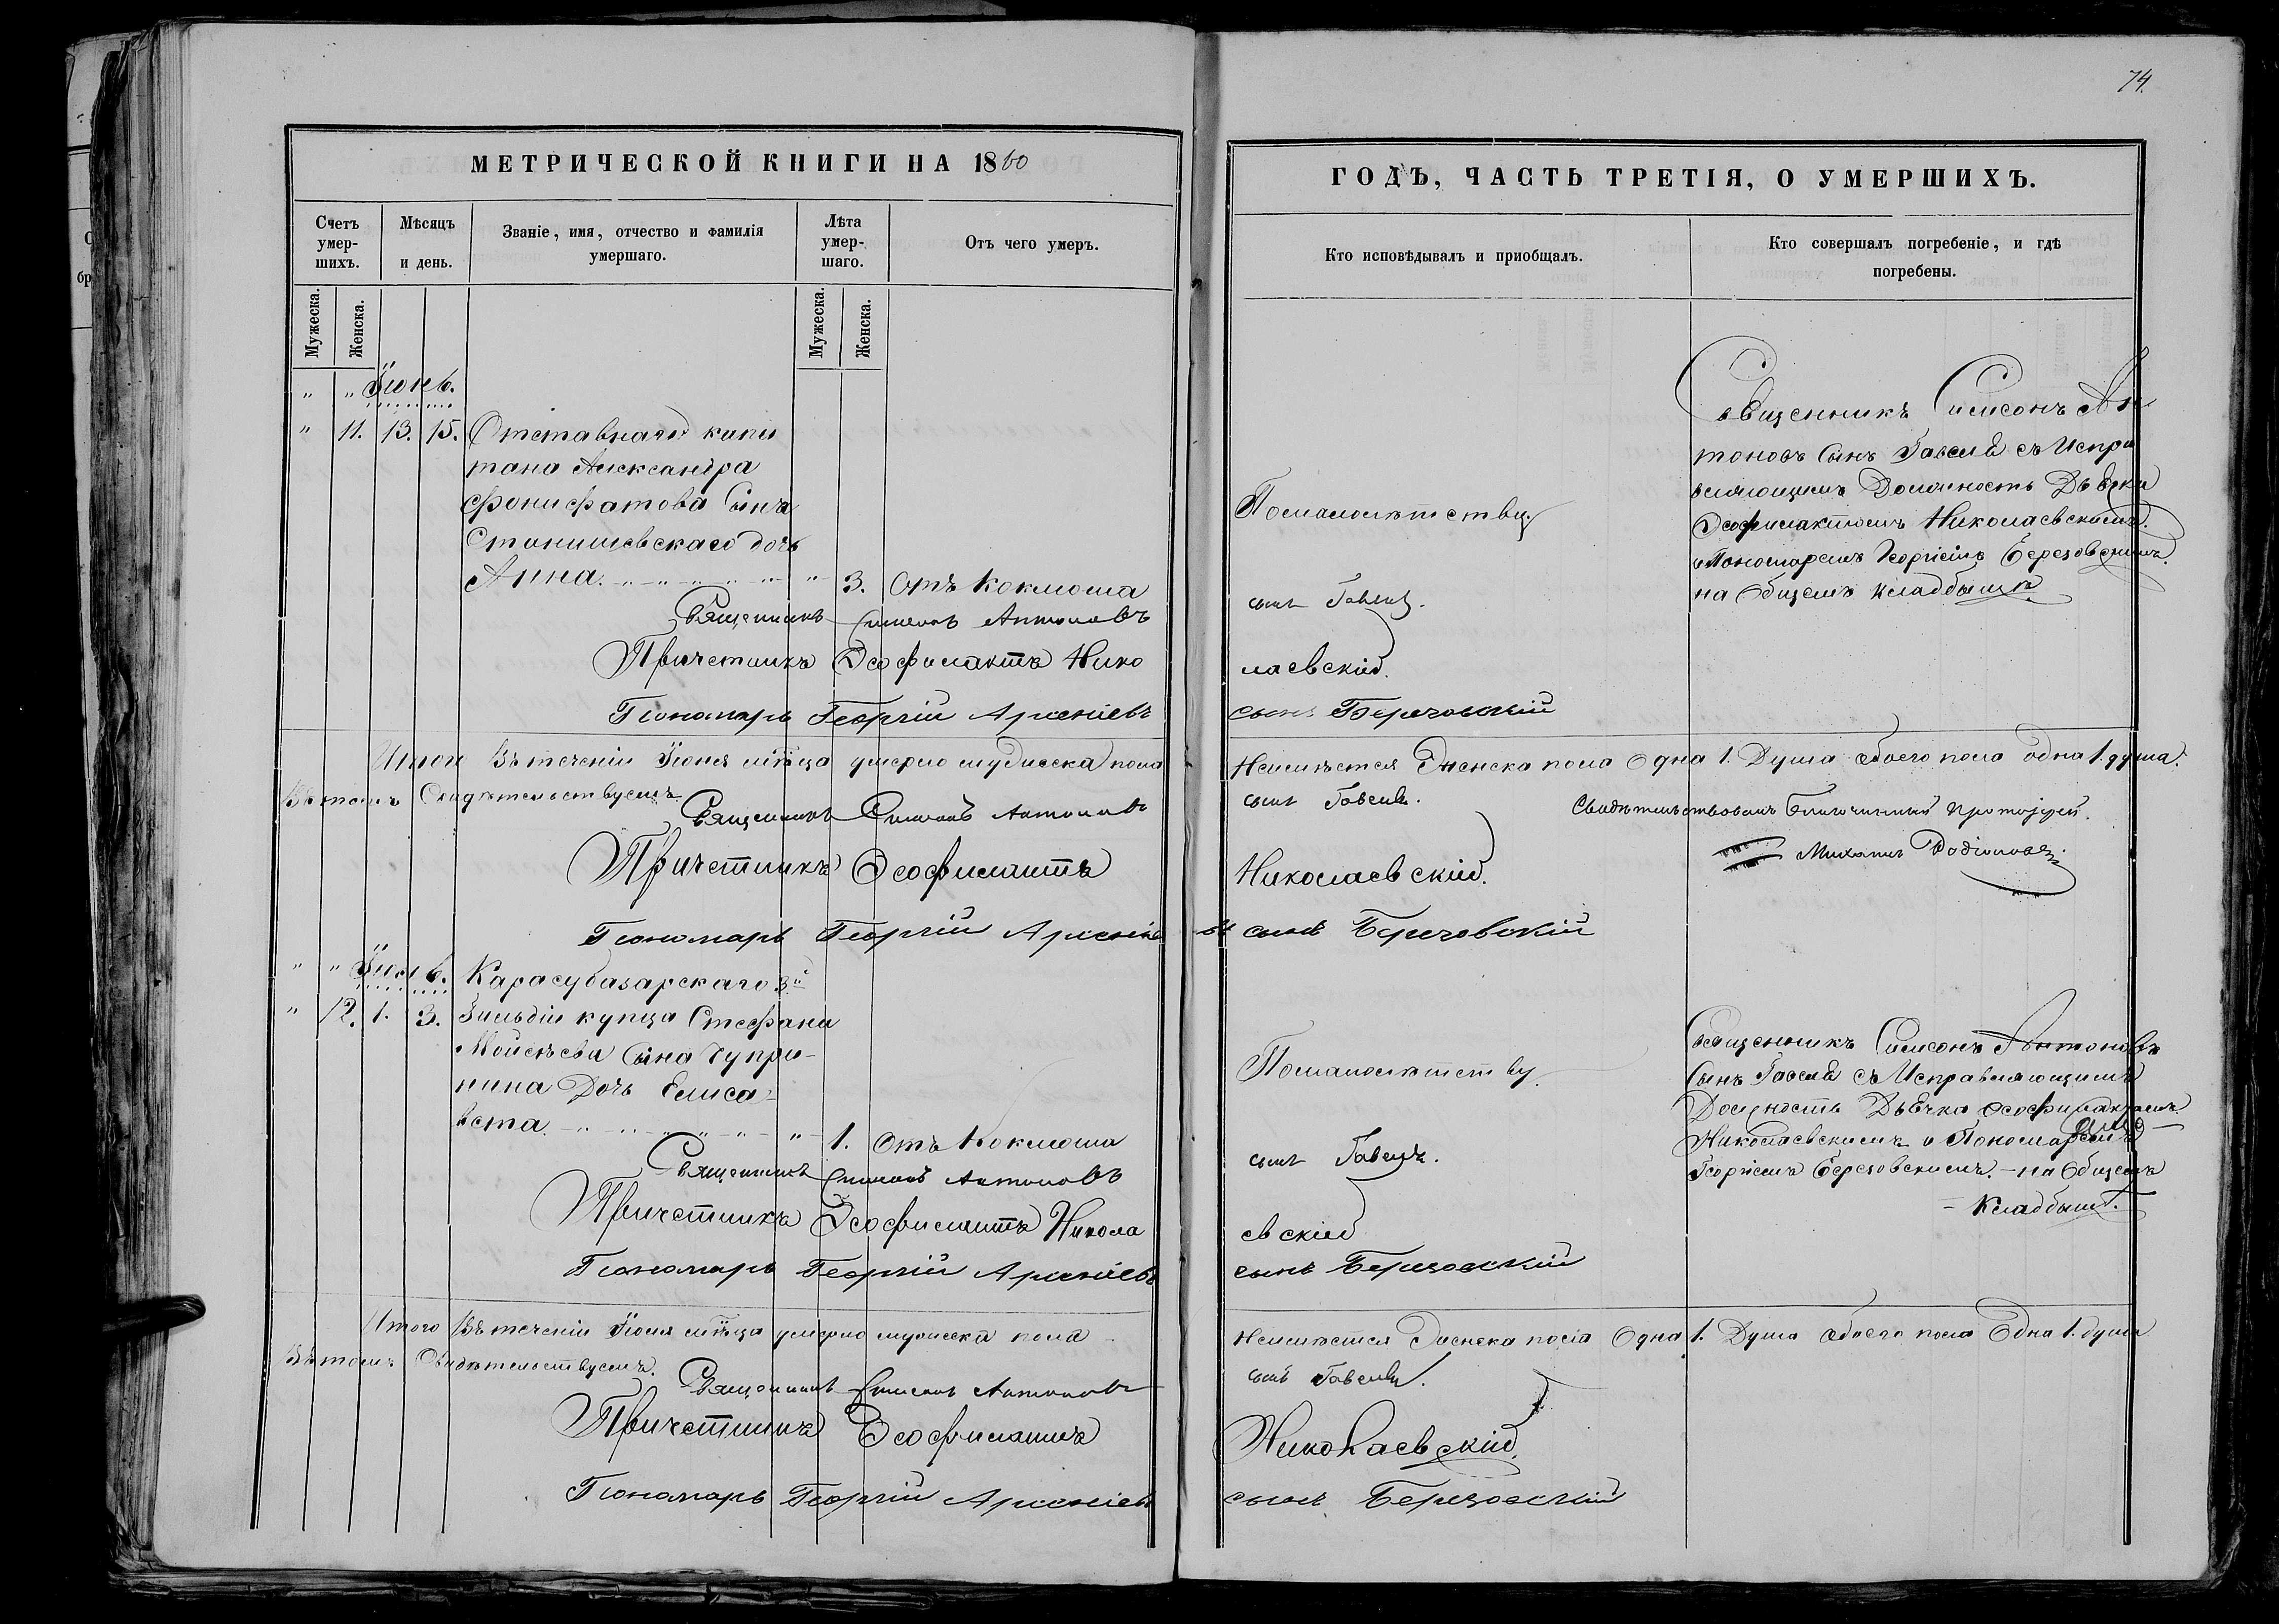 74.
МЕТРИЧЕСКОЙ КНИГИ НА 1860
Счетъ умер-шихъ.
Мѣсяцъ и день.
Званіе, имя, отчество и фамилія умершаго.
Лѣта умер-шаго.
Отъ чего умеръ.
Мужеска.
Женска.
Мужеска.
Женска.
" " Іюнь.
" 11. 13. 15. Отставнаго капи
тана Александра
Фонифатова Сына
Станишевскаго дочь
Анна. " 3. Отъ коклюша
Священникъ Симеонъ Антоновъ
Причетникъ Ѳеофилактъ Нико
Пономарь Георгій Арсеніевъ
Итого Въ теченіи Іюня мѣсяца умерло мужеска пола
Въ томъ Свидѣтельствуемъ.
Священникъ Симеонъ Антоновъ
Причетникъ Ѳеофилактъ
Пономарь Георгій Арсеніе
" " Іюль. Карасубазарскаго 3й
" 12. 1. 3. Гильдіи купца Стефана
Мойсѣева Сына Чупри-
нина Дочь Елиса-
вета. " 1. Отъ Коклюша
Священникъ Симеонъ Антоновъ
Причетникъ Ѳеофилактъ Никола
Пономарь Георгій Арсеніевъ
Итого Въ теченіи Іюля мѣсяца умерло мужеска пола
Въ томъ Свидѣтельствуемъ.
Священникъ Симеонъ Антоновъ
Причетникъ Ѳеофилактъ
Пономарь Георгій Арсеніевъ
ГОДЪ, ЧАСТЬ ТРЕТІЯ, О УМЕРШИХЪ.
Кто исповѣдывалъ и приобщалъ.
Кто совершалъ погребеніе, и гдѣ
погребены.
Священникъ Симеонъ Ан
тоновъ Сынъ Гавель съ Испра
вляющимъ Должность Дьячка
Ѳеофилактомъ Николаевскимъ.
и Пономаремъ Георгіемъ Березовскимъ.
на Общемъ кладбищѣ
Помалолѣтству.
сынъ Гавель.
лаевскій.
сынъ Березовскій
Неимѣется Женска пола Одна 1. Душа обоего пола одна 1. душа.
сынъ Гавель.
Свидѣтельствовалъ Благочинный Протоіерей.
Михаилъ Родіоновъ
Николаевскій.
въ сынъ Березовскій
Священникъ Симеонъ Антоновъ
Сынъ Гавель съ Исправляющимъ
Должность Дьячка Ѳеофилактомъ
Николаевскимъ и Пономаремъ
Георгіемъ Березовскимъ. - на Общемъ
- Кладбищѣ.
Помалолѣтству.
сынъ Гавель.
евскій
сынъ Березовскій
Неимѣется Женска пола Одна 1. Душа обоего пола Одна 1. душа
сынъ Гавель.
Николаевскій.
сынъ Березовскій